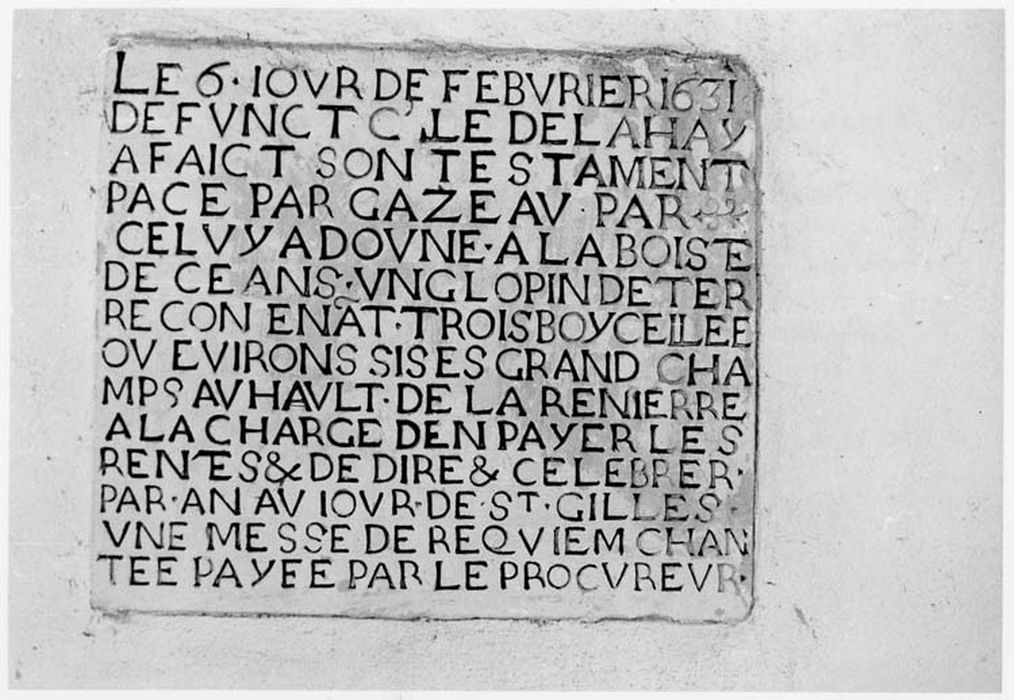 LE 6· IOVR DE FEBVRIER 1631
DEFVNCT C' LLE DELAHAY
A FAICT SON TESTAMENT
PACE PAR GAZEAV · PAR
CELVY A DOVNE·A LA BOISTE
DE CEANS·VNG LOPIN DE TER
RE CONENÃT·TROIS BOYCELLEE
OV EVIRONS SISES GRAND CHA
MPS AV HAVLT·DE LA RENIERRE
A LA CHARGE DEN PAYER LES
RENTES & DE DIRE & CELEBRER·
PAR·AN AV IOVR·DE·ST·GILLES·
VNE MESSE DE REQVIEM CHAN
TEE PAYEE PAR LE PROCVREVR·